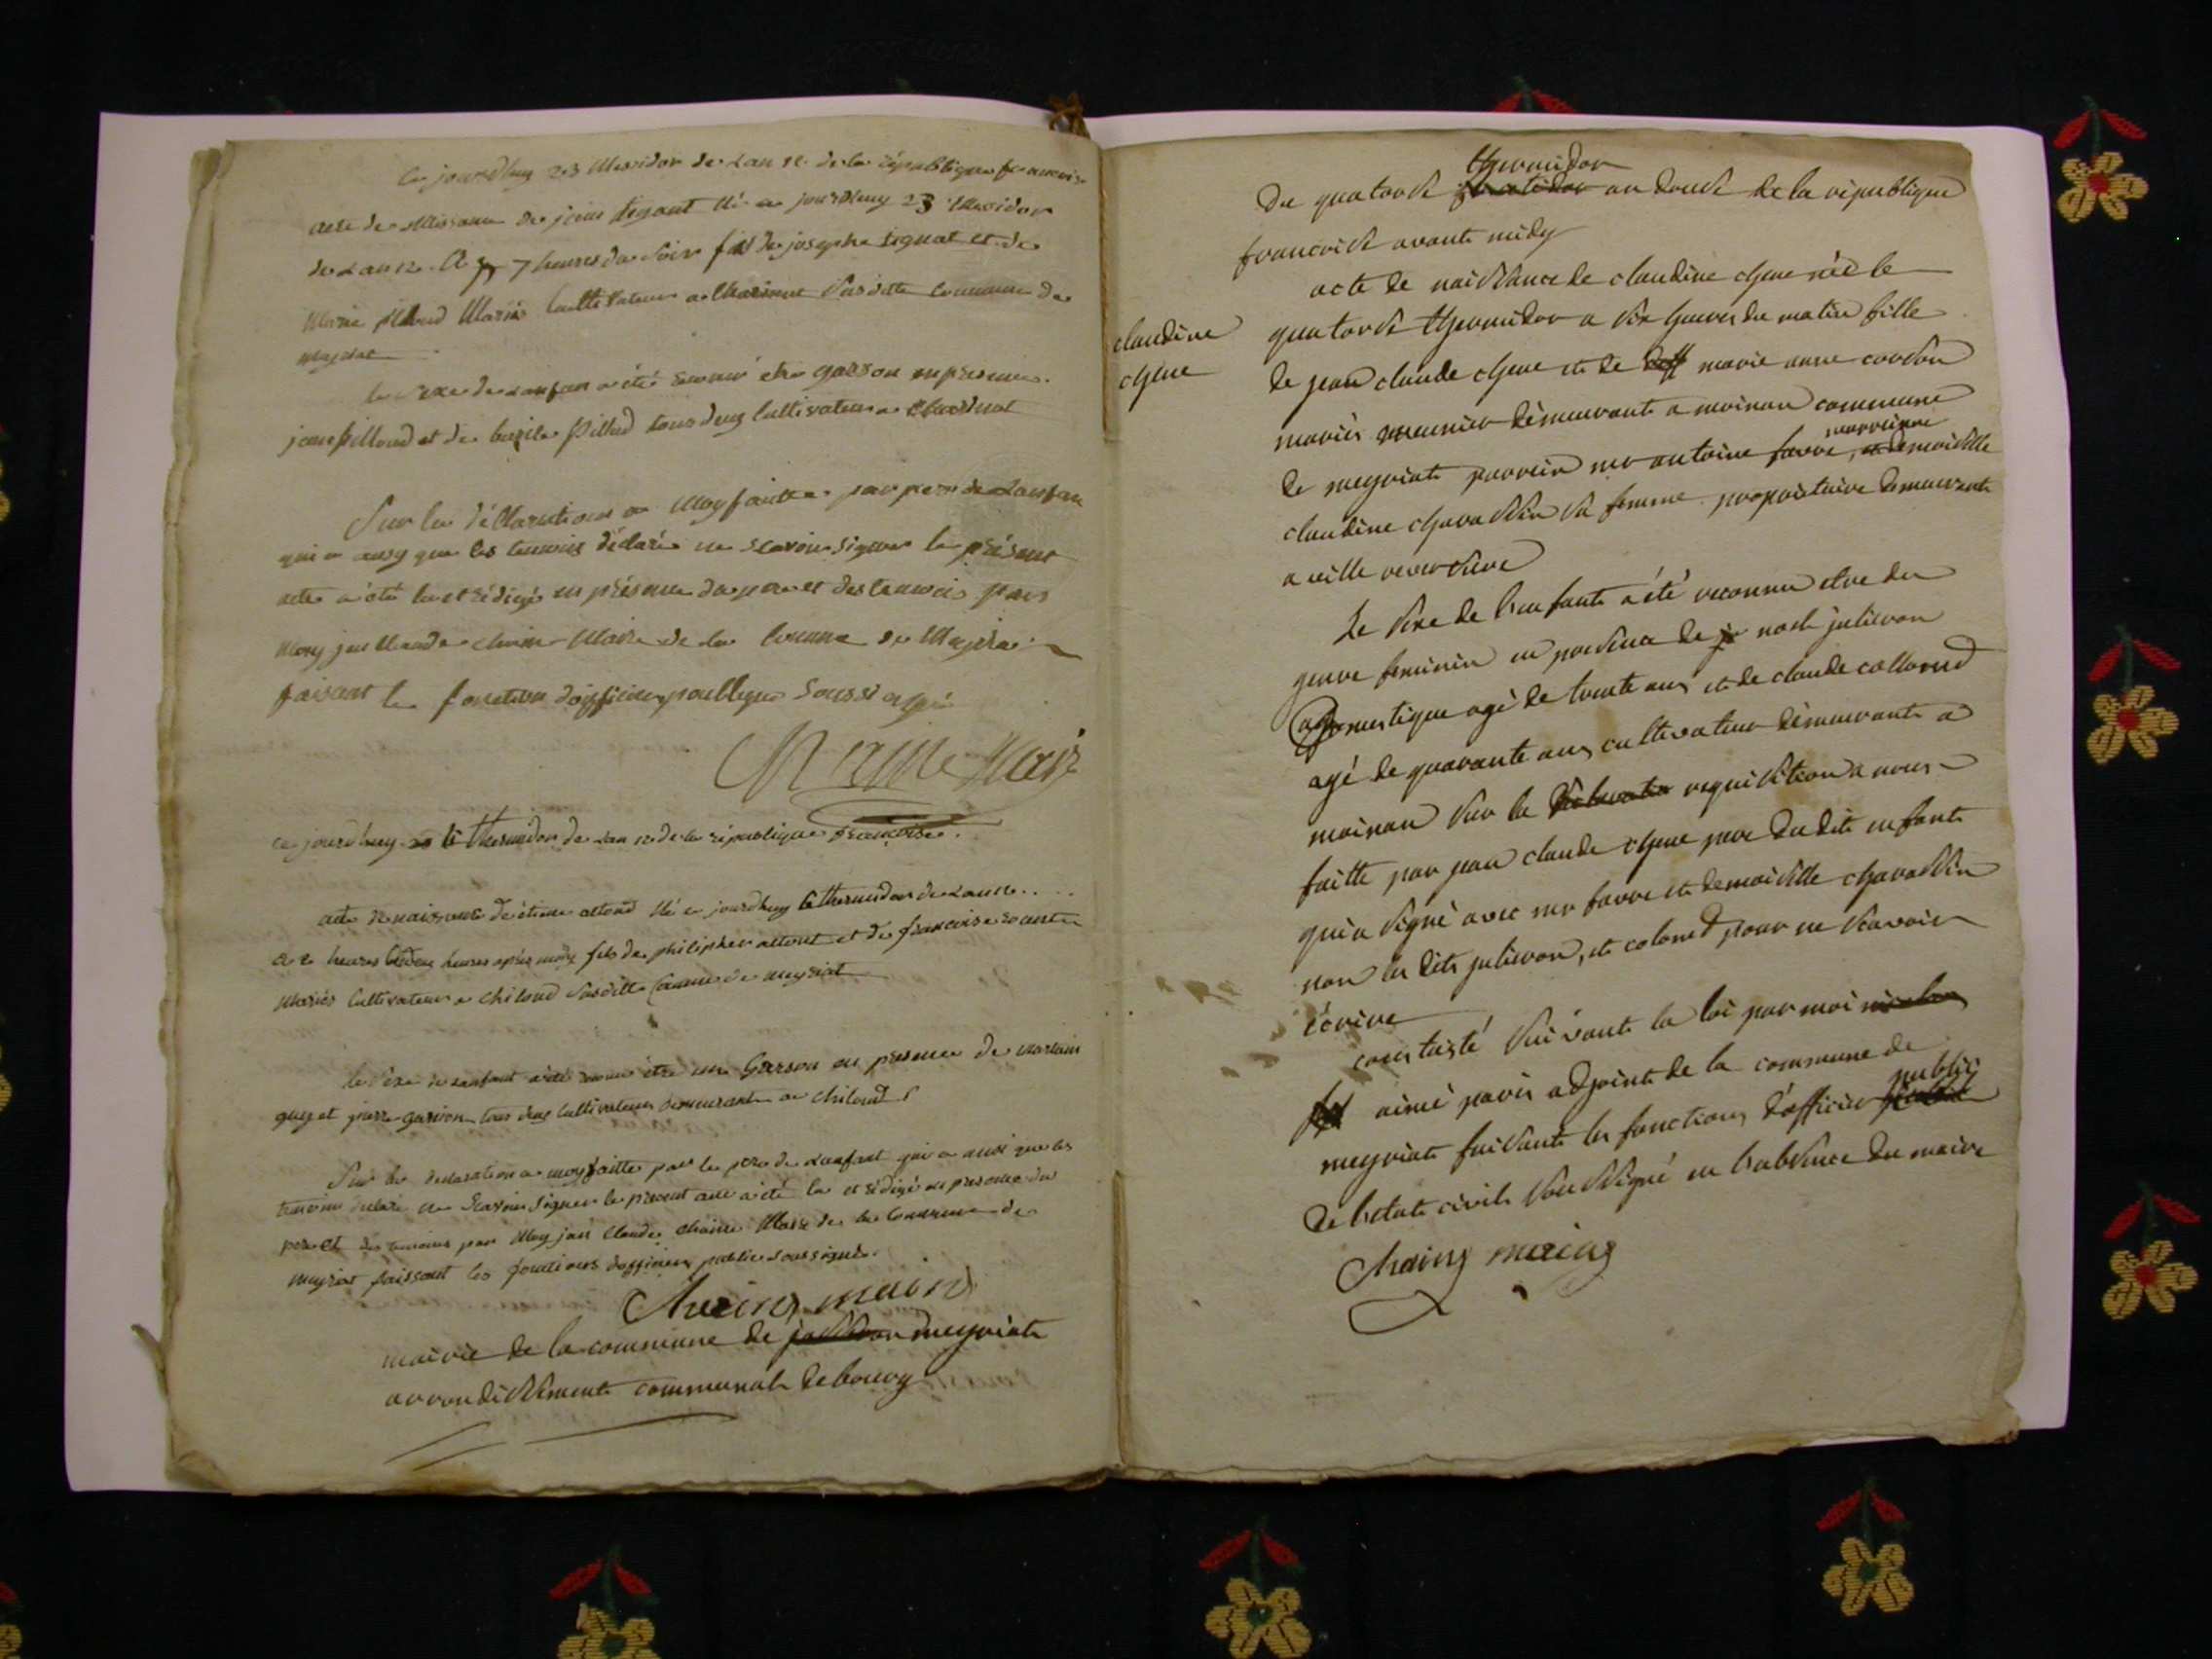 Ce jourdhuy 23 Messidor de Lan 12 de la République francoise
acte de Naissance de jean signat né ce jourdhuy 23 Messidor
de Lan 12 A 7 heures du Soir fils de josephe signat et de
Marie pilloud Mariés Cultivateur a Charinat Susditte Commune de
Meyriat
le sexe de Lanfan a été reconnu etre garson en présence
jean pilloud et de bazile pilloud tous deux Cultivateur a Charinat
Sur la déClaration a Moy faitte par pere de Lanfan
qui a ausy que les temoins déclaré ne scavoir signer le présant
acte a été lu et rédigé en présence du pere et des temoins par
Moy jan Claude chaine Maire de la Commune de Meyria
faisant la fonction dofficier publique Soussigné
Chaine Maire
ce jourdhuy le thermidor de Lan 12 de la république francoise.
acte de naissance de étiene attoud Né ce jourdhuy thermidor de Lan 12 . . . .
a 2 heures deux heures après midy fils de philipher attout et de francoise
Mariés Cultivateur a Chiloud Susditte Commune de meyriat
le sexe de Lanfant a été reconu être une Garson en presence de martain
guy et pierre garvion tous deux Cultivateurs demeurant a chiloud
Sur la declaration a moy faitte par le pere de Lanfant qui a ausi que les
temoins declaré ne Scavoir Signer le present acte a été lu et rédigé en presence du
pere et des temoins par Moy jan Claude Chaine Maire de la Commune de
meyriat faissant les fonctions dofficier public soussigné.
Chaine maire
mairie de la commune de meyriat
arrondissement communal de bourg
thermidor
Du quatorse an douse de la république
francoise avant midy
acte de naissance de claudine chene née le
claudine
chene
quatorse thermidor a six heures du matin fille
de jean claude chene et de marie anne cordon
mariés meunier démeurant a moinan commune
marrienne
de meyriat parrein mr antoine favre, demoiselle
claudine chavassin sa femme propriétaire demeurant
a ville reversure
Le sexe de l'enfant a été reconnu etre du
genre feminin en présence de noel julieron
domestique agé de trente ans et de claude collomd
agé de quarante ans cultivateur démeurant a
moinan sur la requisition a nous
faitte par jean claude chene pere du dit enfant
qui a signé avec mr favre et demoiselle chavassin
non les dits julieron, et colomd pour ne scavoir
écrire
constasté suivant la loi par moi
aimé pavis adjoint de la commune de
public
meyriat faisant les fonctions d'officier
de l'etat civil soussigné en l'absence du maire
Chaing maire